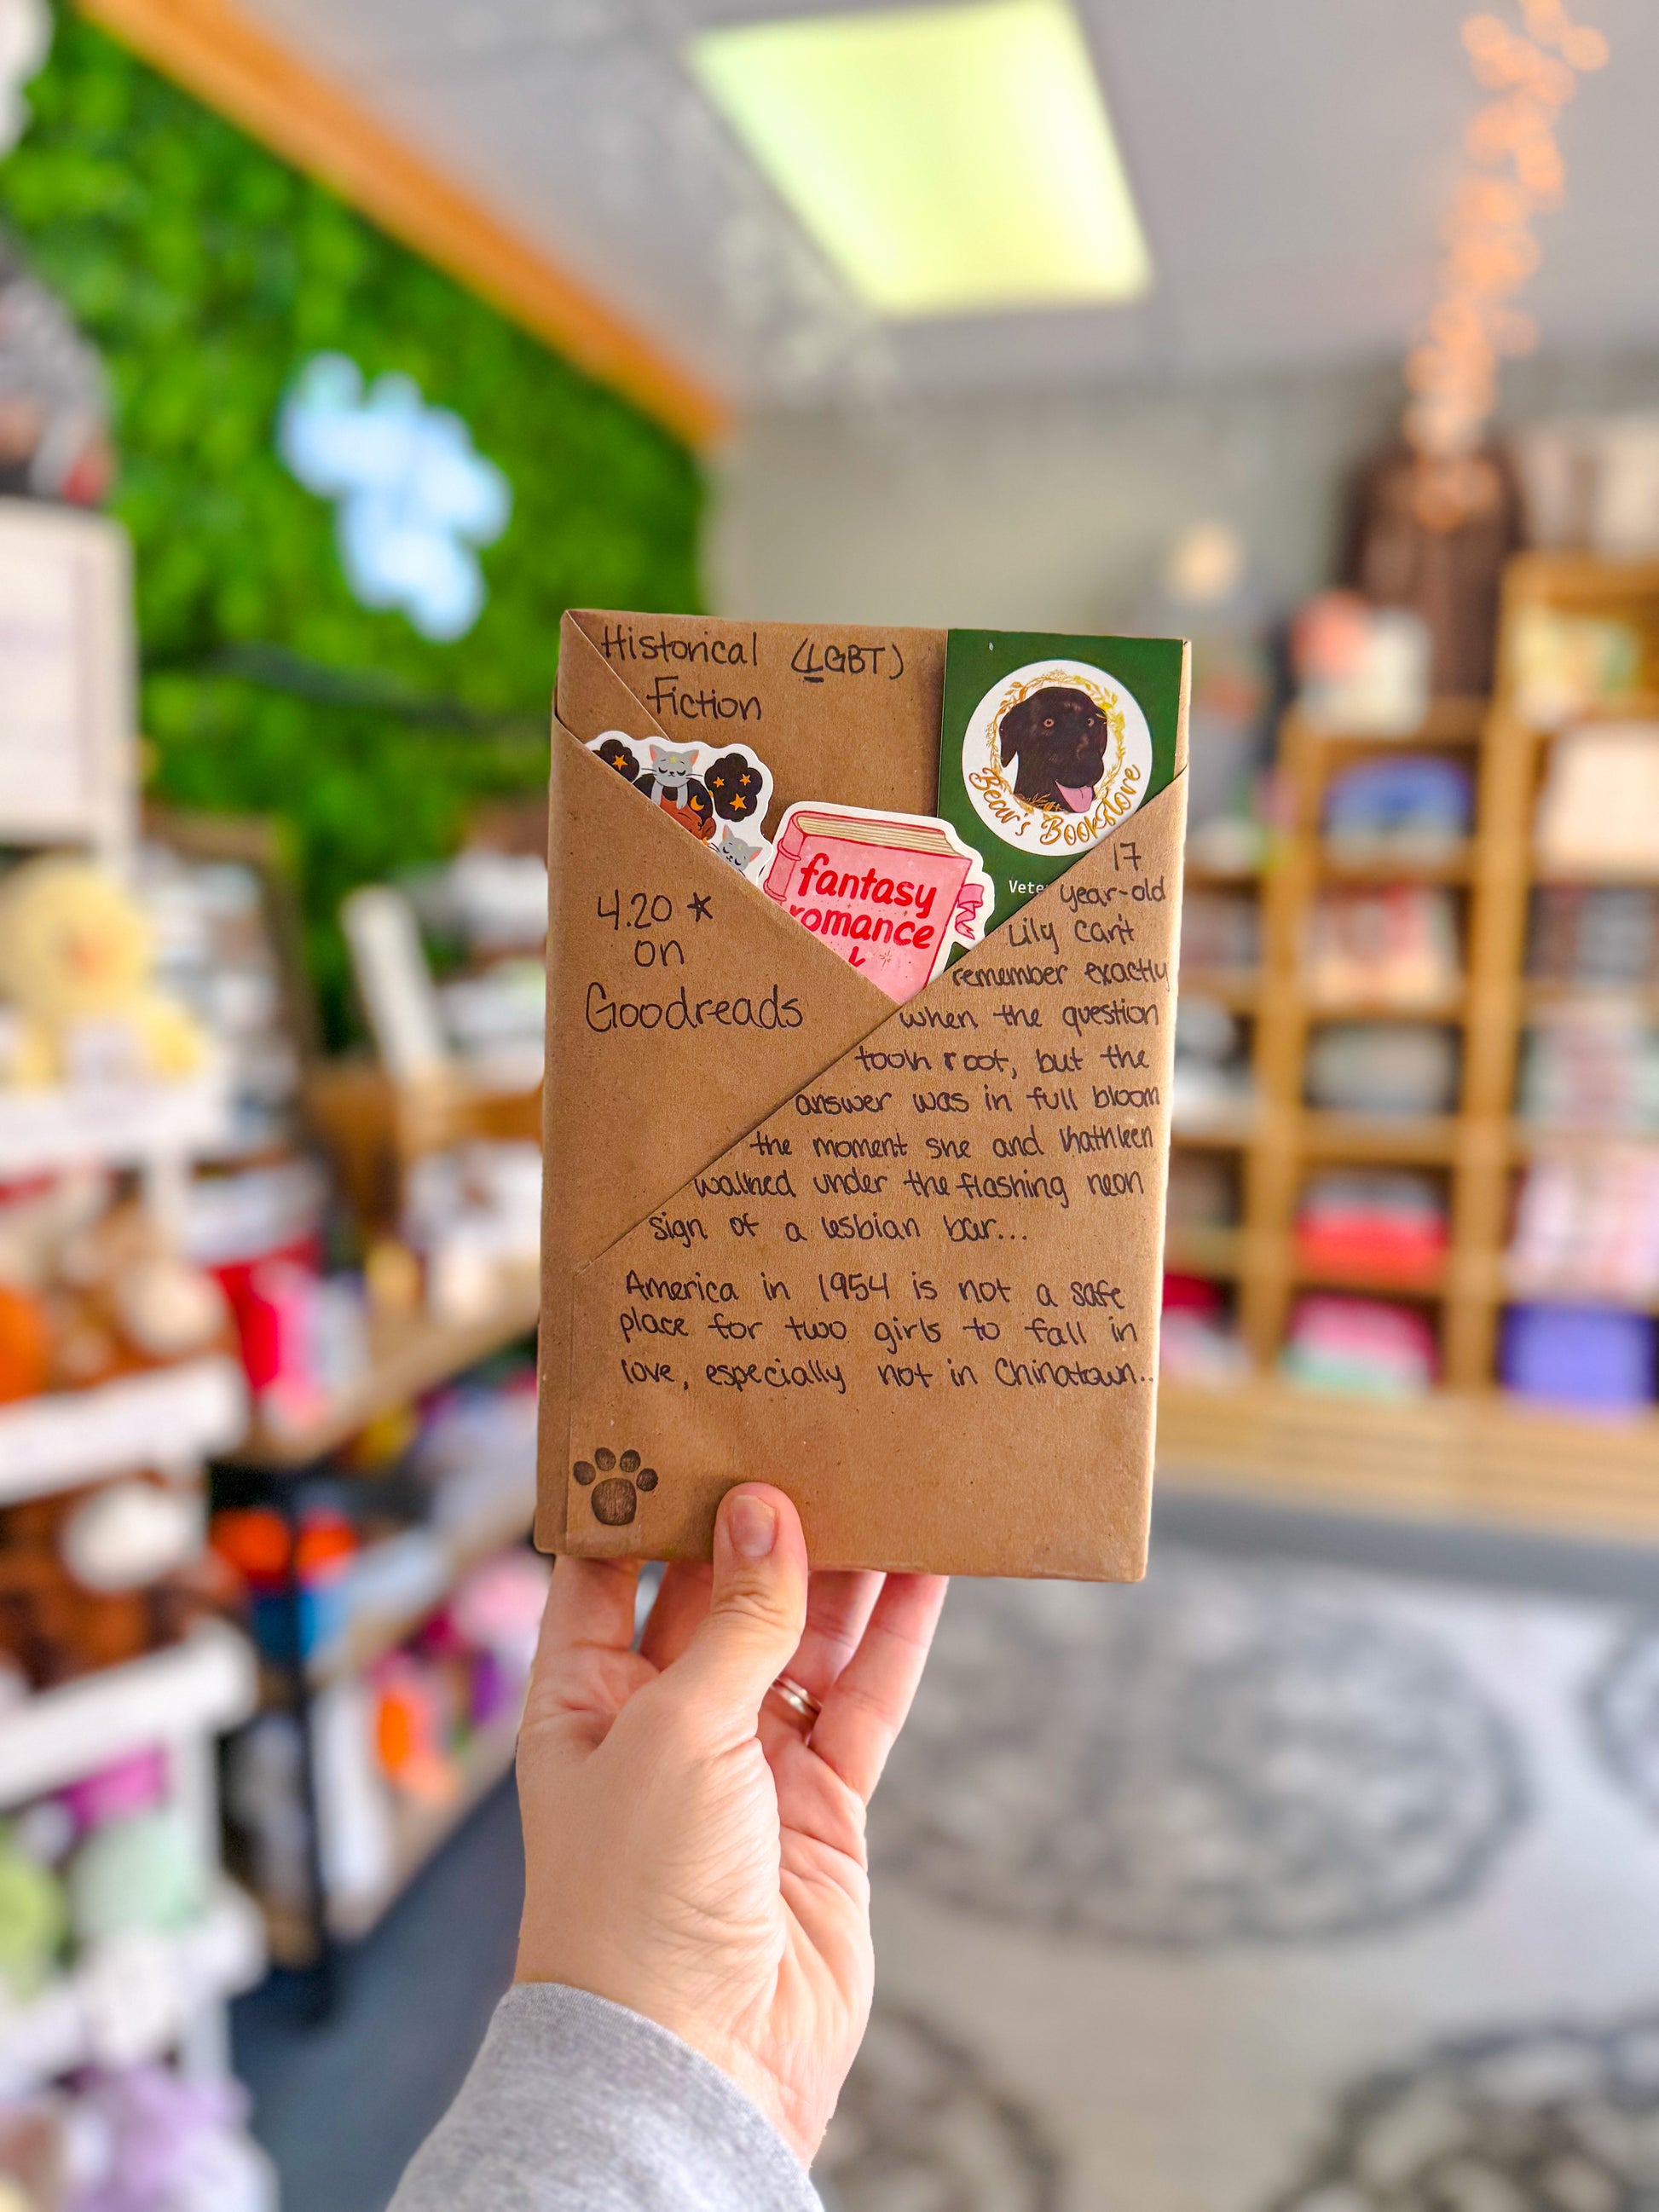 Historical (LGBT)
Fiction
Bear's Bookstore
fantasy
romance
4.20 * 
on
Goodreads
17
year-old
Lily can't
remember exactly
when the question
took root, but the
answer was in full bloom
the moment she and Kathleen
walked under the flashing neon
sign of a lesbian bar...
America in 1954 is not a safe
place for two girls to fall in
love, especially not in Chinatown..